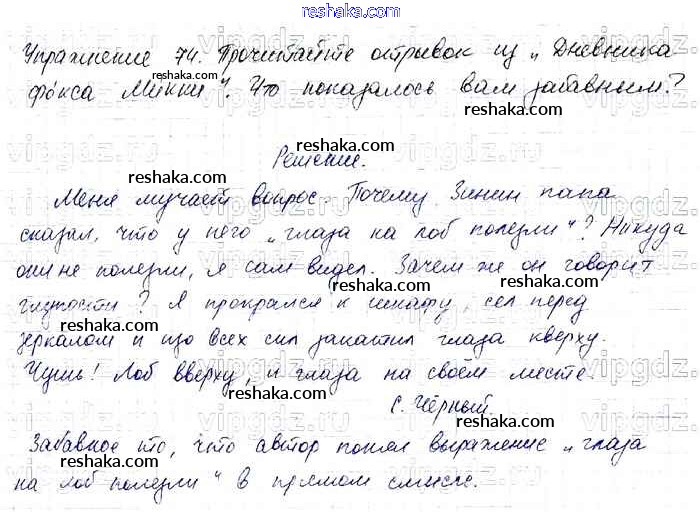 reshaka.com
Упражнение 74. Прочитайте отрывок из „Дневника
фокса Микки". Что показалось вам забавным?
Решение.
Меня мучает вопрос. Почему Зинин папа
сказал, что у него „глаза на лоб полезли"? Никуда
они не полезли, я сам видел. Зачем же он говорит
глупости? Я прокрался к шкафу, сел перед
зеркалом и изо всех сил закатил глаза кверху.
Чушь! Лоб вверху, и глаза на своём месте.
С. Чёрный.
Забавное то, что автор понял выражение „глаза
на лоб полезли" в прямом смысле.